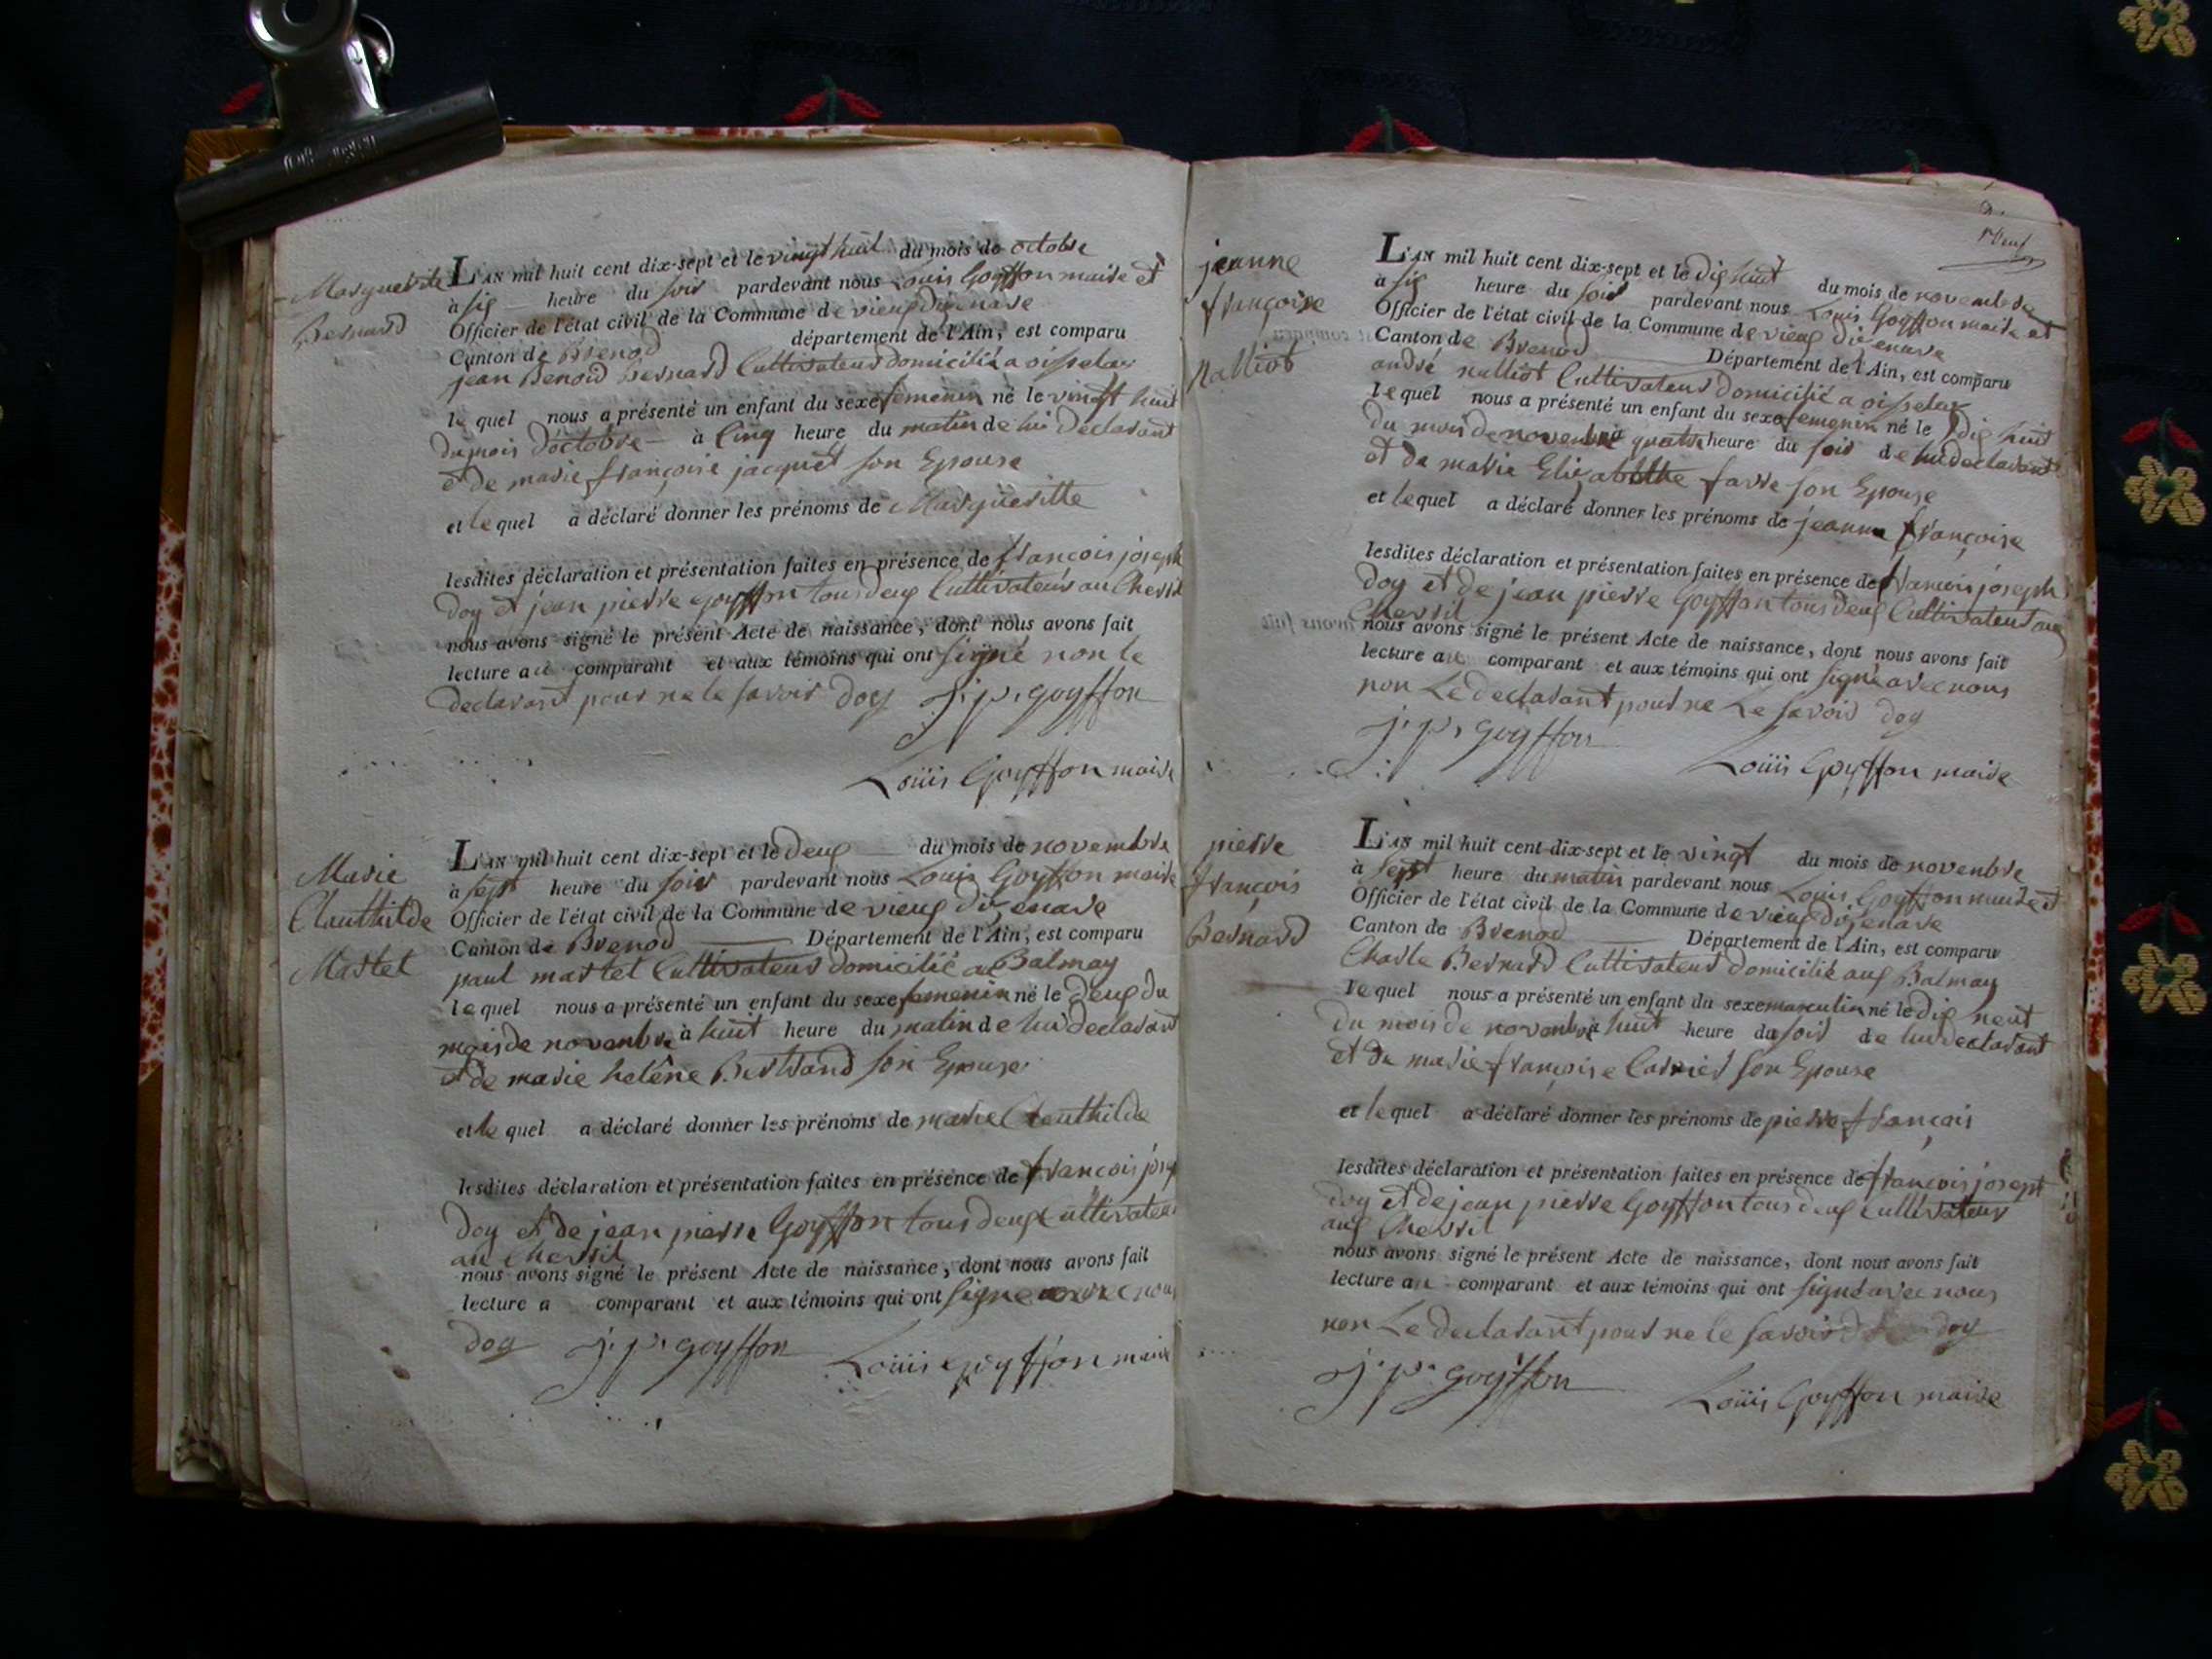 Marguerite
Bernard
L'AN mil huit cent dix-sept et le vingt huit du mois de octobre
à six heure du soir pardevant nous Louis Goyffon maire et
Officier de l'état civil de la Commune de vieux dizenave
Canton de Brenod département de l'Ain, est comparu
jean Benoid Bernard Cultivateur domicilié a oisselaz
le quel nous a présenté un enfant du sexe femenin né le vingt huit
du mois d'octobre à Cinq heure du matin de lui declarant
et de marie françoise jacquet son Epouse
et le quel a déclaré donner les prénoms de Margueritte
lesdites déclaration et présentation faites en présence de francois joseph
doy et jean pierre goyffon tous deux Cultivateurs au Chevril
nous avons signé le présent Acte de naissance, dont nous avons fait
lecture au comparant et aux témoins qui ont signé non le
declarant pour ne le savoir doy j. p. goyffon
Loüis Goyffon maire
Marie
Cleuthilde
Martel
L'AN mil huit cent dix-sept et le deux du mois de novembre
à sept heure du soir pardevant nous Louis Goyffon maire
Officier de l'état civil de la Commune de vieux dizenave
Canton de Brenod Département de l'Ain, est comparu
paul martel Cultivateur domicilié au Balmay
le quel nous a présenté un enfant du sexe femenin né le deux du
mois de novembre à huit heure du matin de lui declarant
et de marie helêne Bertrand son Epouse
et le quel a déclaré donner les prénoms de marie Cleuthilde
lesdites déclaration et présentation faites en présence de francois josep
doy et de jean pierre Goyffon tous deux Cultivateur
au Chevril
nous avons signé le présent Acte de naissance, dont nous avons fait
lecture a comparant et aux témoins qui ont signe avec nous
doy j. p. goyffon Loüis goyffon maire
jeanne
françoise
Nalliot
L'AN mil huit cent dix-sept et le dix huit du mois de novembre
à six heure du soir pardevant nous Louis Goyffon maire et
Officier de l'état civil de la Commune de vieux dizenave
Canton de Brenod Département de l'Ain, est comparu
andré nalliot Cultivateur domicilié a oisselaz
le quel nous a présenté un enfant du sexe femenin né le dix huit
du mois de novembre à quatre heure du soir de lui declarant
et de marie Elizabethe favre son Epouse
et le quel a déclaré donner les prénoms de jeanne françoise
lesdites déclaration et présentation faites en présence de francois joseph
doy et de jean pierre Goyffon tous deux Cultivateur aux
Chevril
nous avons signé le présent Acte de naissance, dont nous avons fait
lecture au comparant et aux témoins qui ont signé avec nous
non Le declarant pour ne Le savoir doy
j. p. goyffon
Loüis Goyffon maire
pierre
françois
Bernard
L'AN mil huit cent dix-sept et le vingt du mois de novembre
à sept heure du matin pardevant nous Louis Goyffon maire et
Officier de l'état civil de la Commune de vieux dizenave
Canton de Brenod Département de l'Ain, est comparu
Charle Bernard Cultivateur domicilié aux Balmay
le quel nous a présenté un enfant du sexe masculin né le dix neuf
du mois de novembre à huit heure du soir de lui declarant
et de marie françoise Carrier son Epouse
et le quel a déclaré donner les prénoms de pierre françois
lesdites déclaration et présentation faites en présence de francois josept
doy et de jean pierre Goyffon tous deux Cultivateur
aux Chevril
nous avons signé le présent Acte de naissance, dont nous avons fait
lecture au comparant et aux témoins qui ont signé avec nous
non Le declarant pour ne le savoir doy
j. p. goyffon
Loüis Goyffon maire